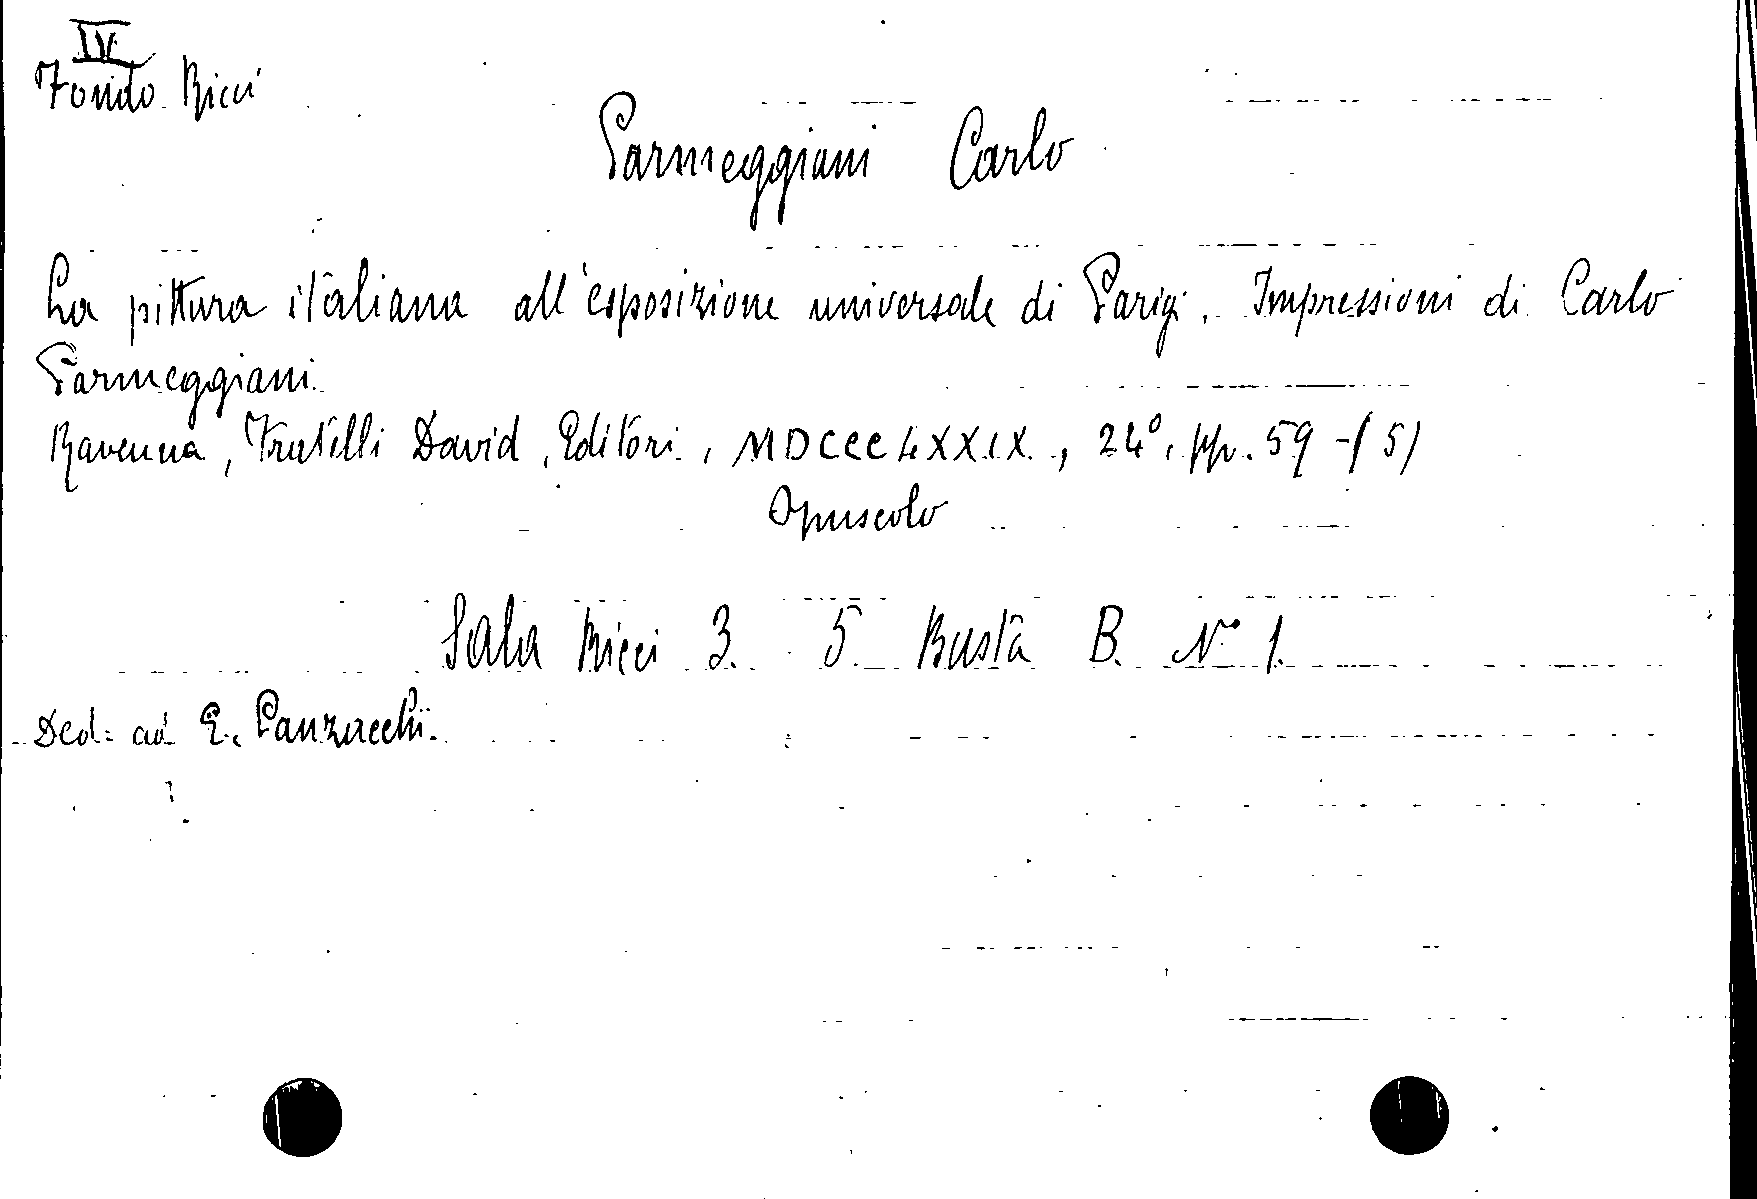 IV
Fondo Ricci
Parmeggiani Carlo
La pittura italiana all'esposizione universale di Parigi. Impressioni di Carlo
Parmeggiani.
Ravenna, Fratelli David, Editori, MDCCCLXXIX, 24°, pp. 59-(5)
Opuscolo
Sala Ricci 3. 5 Busta B. N° 1.
Ded. ad E. Panzacchi.